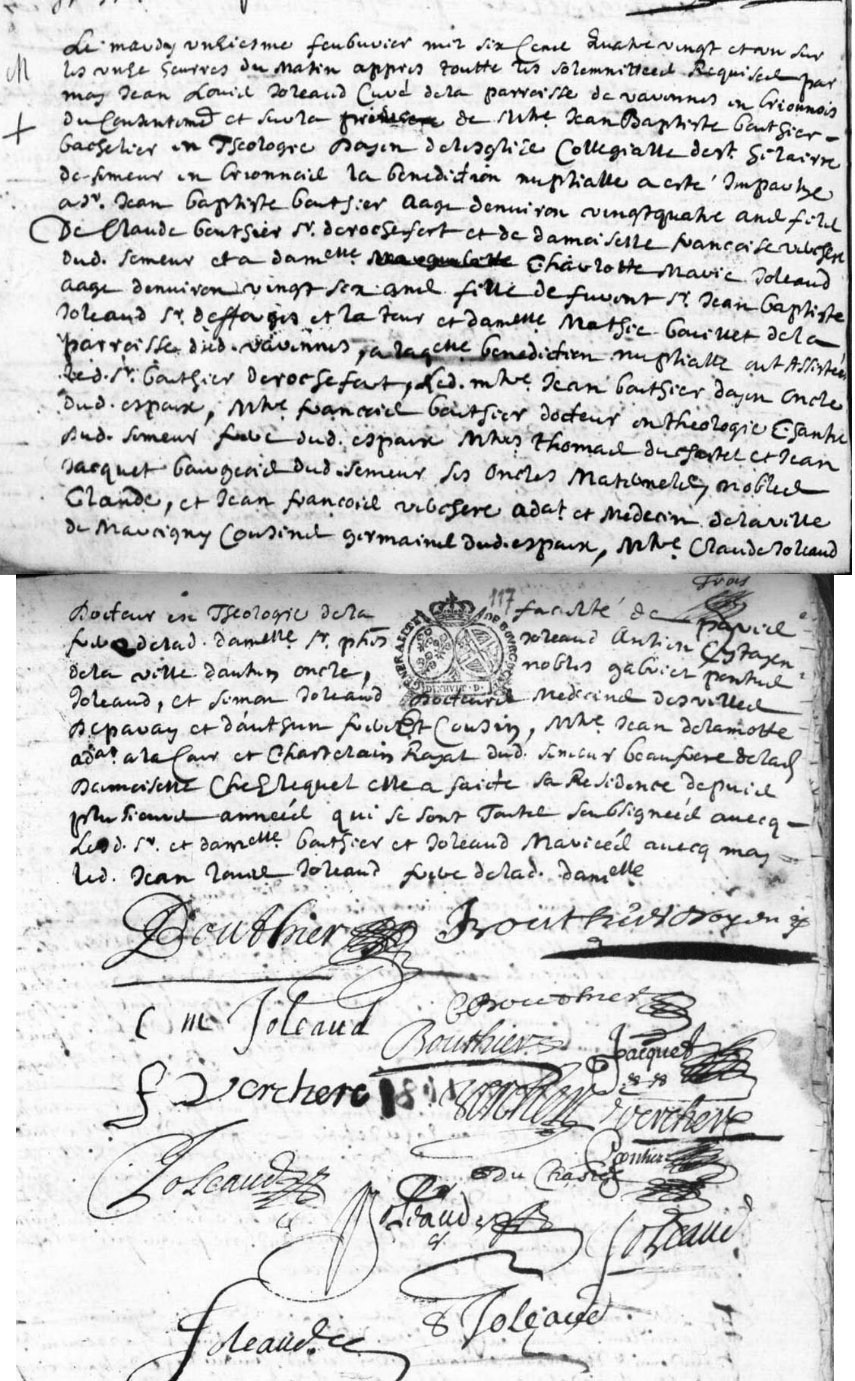 Le mardy unziesme feubvrier mil six Cent quatre vingt et un sur
les unze heures du Matin appres toutte les solemnittees Requises par
M
moy Jean Louis Joleaud Curé de la parroisse de varennes en brionnois
du Consentemt et sur la de Mtre Jean Baptiste bouthier
bachelier en Theologie Doyen de lesglise Collegialle de st hilaire
de semeur en brionnois la benediction nuptialle a esté Impartye
a sr. Jean baptiste bouthier aagé denviron vingtquatre ans fils
De Claude bouthier sr. de rochefort et de damoiselle francoise verchere
dud. semeur et a damelle Charlotte Marie Joleaud
aagé denviron vingt six ans fille de furont sr. Jean baptiste
Joleaud sr. et la tour et damelle Mathie bouillet de la
parroisse dud. varennes, a laqelle benediction nuptialle ont Assistées
led. sr. bouthier de rochefort, Led. mtre Jean bouthier doyen oncle
dud. espoux, Mtre francois bouthier docteur en theologie Chantre
dud. semeur frere dud. espoux Mtres thomas duchastel et Jean
Jacquet bourgeois dud. semeur ses oncles Maternels, nobles
Claude, et Jean francois verchere adat et Medecin de la ville
de Marcigny Cousins germains dud. espoux, Mtre Claude Joleaud
trois
117
Docteur en Theologie de la faculté de paris
frere de lad. damelle sr. phs Joleaud Antien Cytoyen
de la ville dautun oncle, nobles gabriel
Joleaud, et simon Joleaud Docteurs Medecins des villes
De paray et dauthun frere et Cousin, Mtre Jean de lamotte
adat a la Cour et Chastelain Royal dud. semeur beaufrere de lad
Damoiselle Chez lequel elle a faicte sa Residence depuis
plusieurs années qui se sont Toutes soubsignées avecq
Lesd. sr. et damelle bouthier et Joleaud Mariées avecq moy
led. Jean Louis Joleaud frere de lad. damelle
GENERALITE DE BOURGOGNE
Bouthier Bouthier Doyen
C m Joleaud CBouthier
Bouthier Jacquet
F Verchere verchere
Joleaud du Chastel
Joleaud Joleaud
Joleaud Joleaud